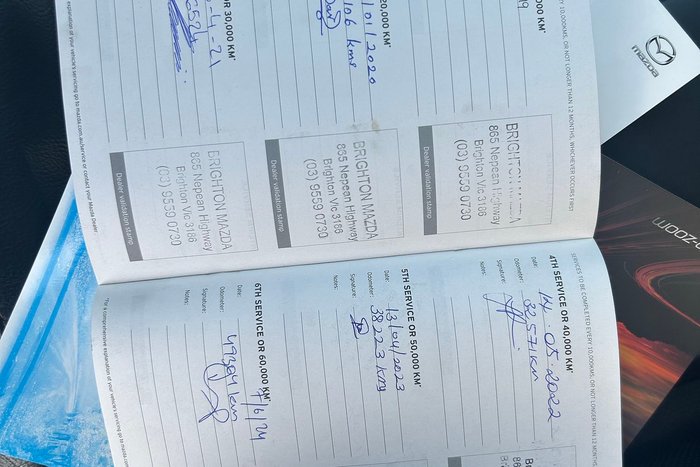 10,000 KM*
Y 10,000KMS, OR NOT LONGER THAN 12 MONTHS, WHICHEVER OCCURS FIRST
19
BRIGHTON MAZDA
865 Nepean Highway
Brighton Vic 3186
(03) 9559 0730
20,000 KM*
/01/2020
106 kms
BRIGHTON MAZDA
865 Nepean Highway
Brighton Vic 3186
(03) 9559 0730
Dealer validation stamp
OR 30,000 KM*
-4-21
BRIGHTON MAZDA
865 Nepean Highway
Brighton Vic 3186
(03) 9559 0730
Dealer validation stamp
Dealer validation stamp
explanation of your vehicle's servicing go to mazda.com.au/service or contact your Mazda Dealer
SERVICES TO BE COMPLETED EVERY 10,000KMS, OR NOT LONGER THAN 12 MONTHS
4TH SERVICE OR 40,000 KM*
Date: 14.05.2022
Odometer: 32,571km
Signature:
Notes:
5TH SERVICE OR 50,000 KM*
Date: 13/04/2023
Odometer: 38223 kms
Signature:
Notes:
6TH SERVICE OR 60,000 KM*
Date: 7/6/24
Odometer: 49304 km
Signature:
Notes:
*For a comprehensive explanation of your vehicle's servicing go to
mazda